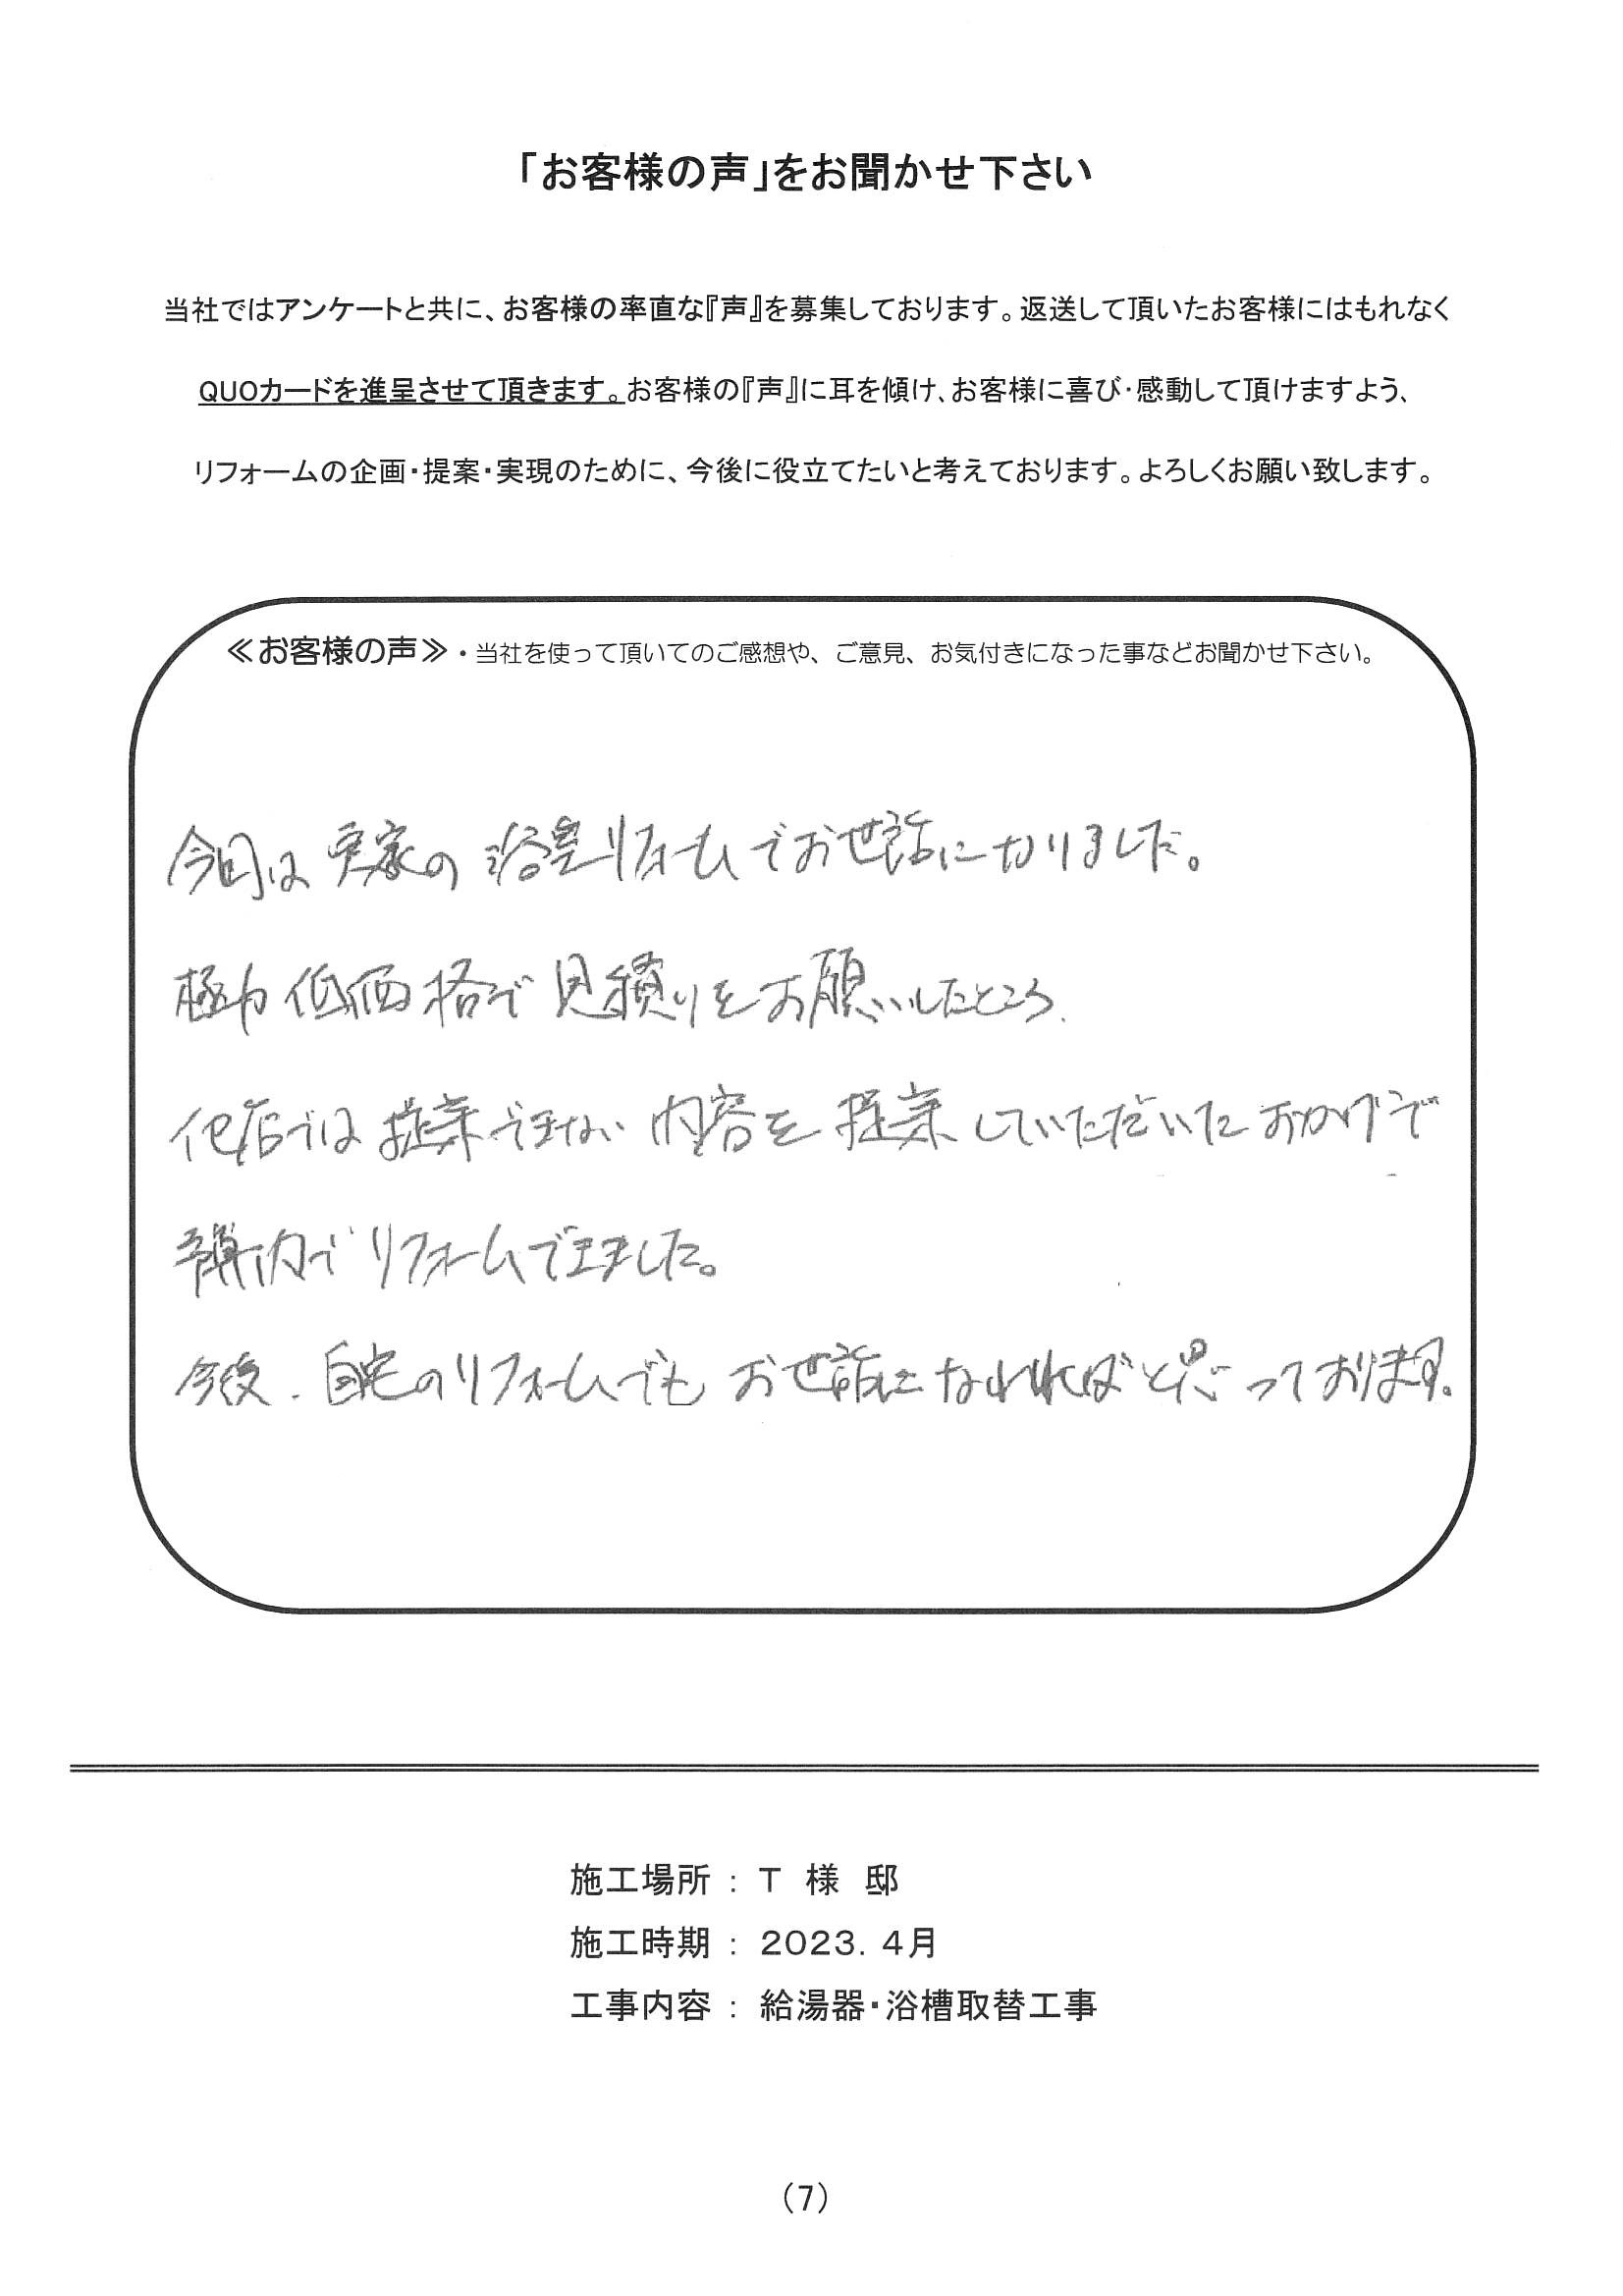 「お客様の声」をお聞かせ下さい
当社ではアンケートと共に、お客様の率直な『声』を募集しております。返送して頂いたお客様にはもれなく
QUOカードを進呈させて頂きます。お客様の『声』に耳を傾け、お客様に喜び・感動して頂けますよう、
リフォームの企画・提案・実現のために、今後に役立てたいと考えております。よろしくお願い致します。
≪お客様の声≫・当社を使って頂いてのご感想や、ご意見、お気付きになった事などお聞かせ下さい。
今回は実家の浴室リフォームでお世話になりました。
極力低価格で見積りをお願いしたところ、
他店では提案できない内容を提案していただいたおかげで
予算内でリフォームできました。
今後、自宅のリフォームでもお世話になれればと思っております。
施工場所 : T 様 邸
施工時期 : 2023. 4月
工事内容 : 給湯器・浴槽取替工事
(7)